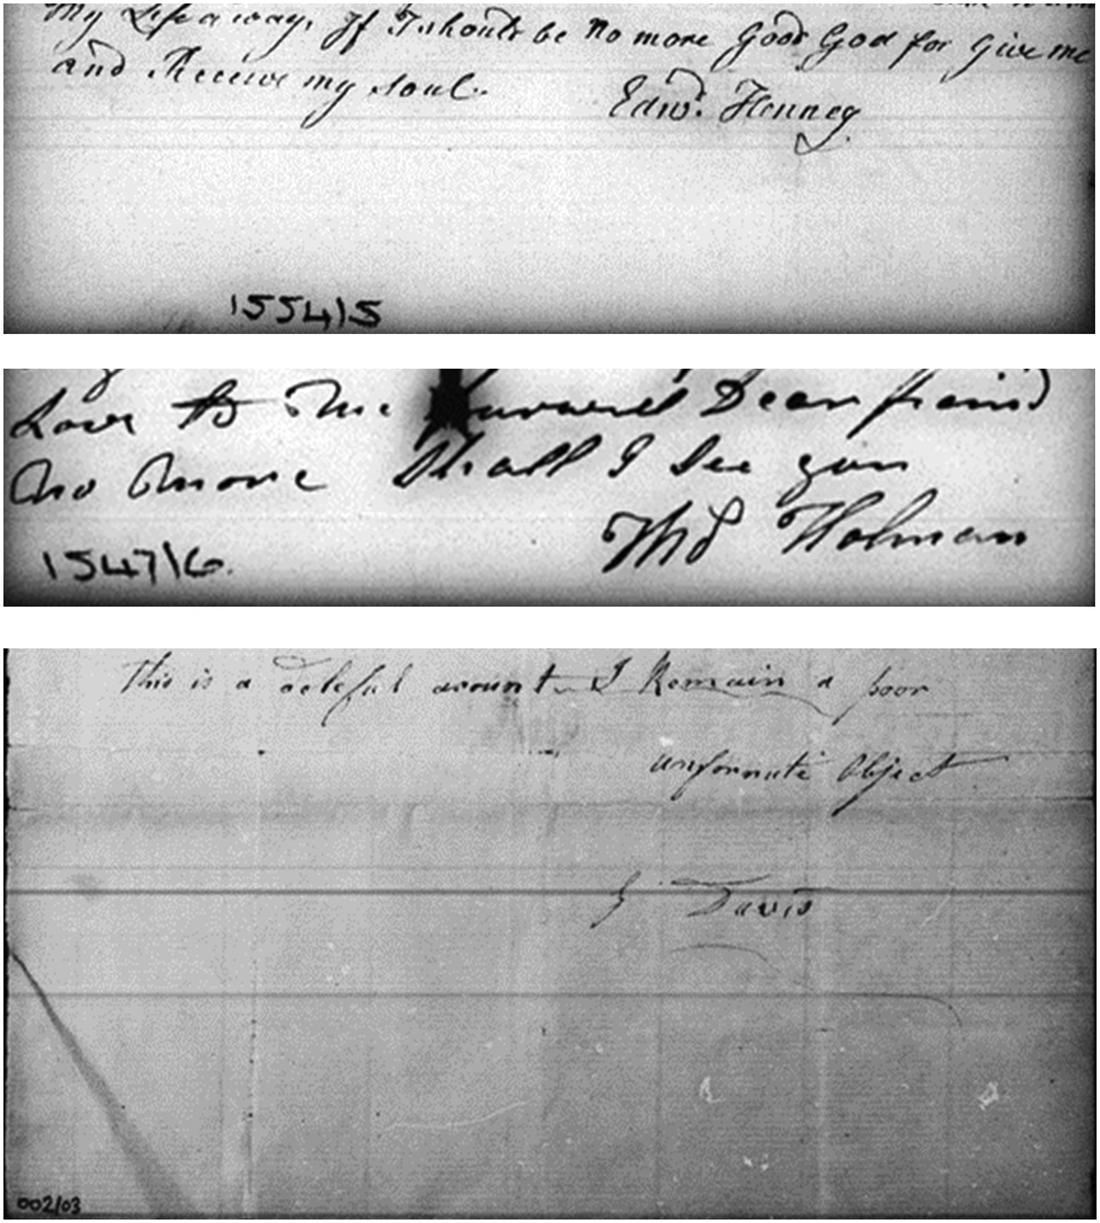 My Life away, If I should be no more Good God for give me
and Receive my soul.
Edwd. Henney
1554/5
Love to Me Farwell Dear friend
No More Shall I See you
Thos Holman
1547/6.
This is a doleful acount I Remain a poor
unfornate Object
G Davis
002/03